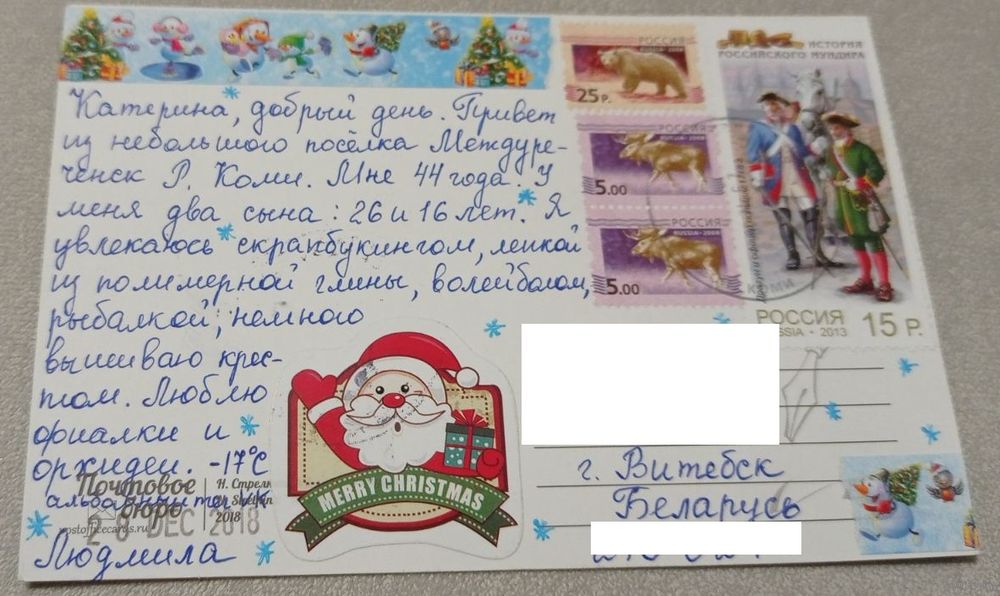 Катерина, добрый день. Привет
из небольшого посёлка Междуре-
ченск Р. Коми. Мне 44 года. У
меня два сына: 26 и 16 лет. Я
увлекаюсь скрапбукингом, лепкой
из полимерной глины, волейболом,
рыбалкой, немного
вышиваю крес-
том. Люблю
фиалки и
орхидеи. -17°C
Людмила
Почтовое
бюро
postofficecards.ru
Н. Стрел
2018
DEC 2018
MERRY CHRISTMAS
РОССИЯ
RUSSIA • 2008
25 Р.
РОССИЯ
RUSSIA • 2008
5.00
РОССИЯ
RUSSIA • 2008
5.00
ИСТОРИЯ
РОССИЙСКОГО МУНДИРА
РОССИЯ
SSIA • 2013
15 Р.
КОМИ
г. Витебск
Беларусь